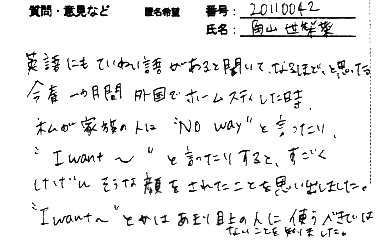 質問・意見など 匿名希望 番号: 20110042
氏名:
英語にもていねい語があると聞いて、なるほど、と思った。
今春一カ月間 外国でホームステイした時、
私が家族の人に "NO way" と言ったり、
"I want ~" と言ったりすると、すごく
けげんそうな顔をされたことを思い出しました。
"I want~" とかはあまり目上の人に使うべきでは
ないことを知りました。